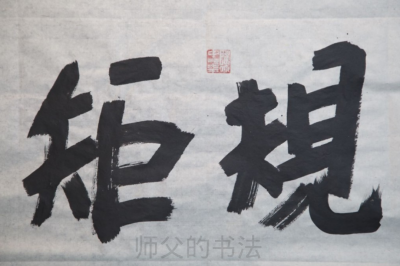 規矩
师父的书法